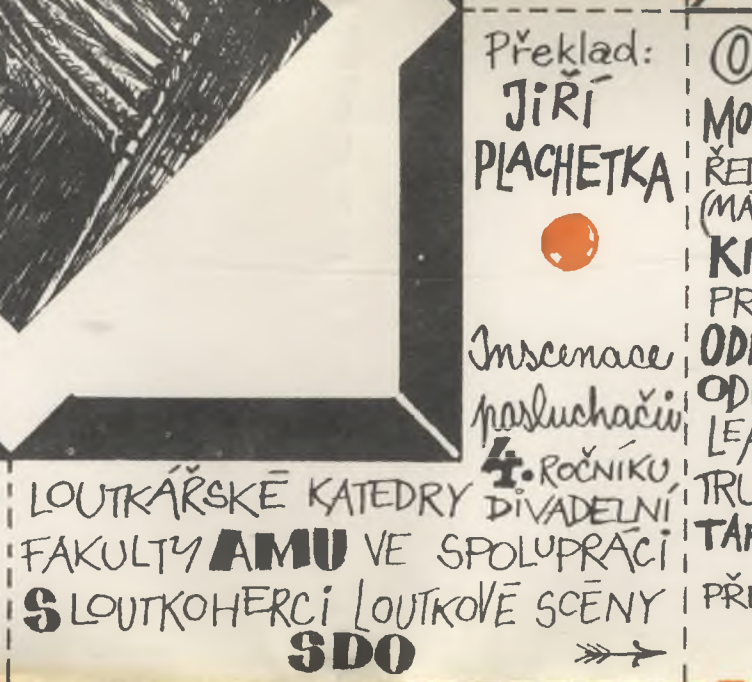 Překlad:
JIŘÍ
PLACHETKA
Inscenace
posluchačů
4. ROČNÍKU
LOUTKÁŘSKÉ KATEDRY DIVADELNÍ
FAKULTY AMU VE SPOLUPRÁCI
S LOUTKOHERCI LOUTKOVÉ SCÉNY
SDO
O
MO
(MÁ
PR
OD
LEA
TRU